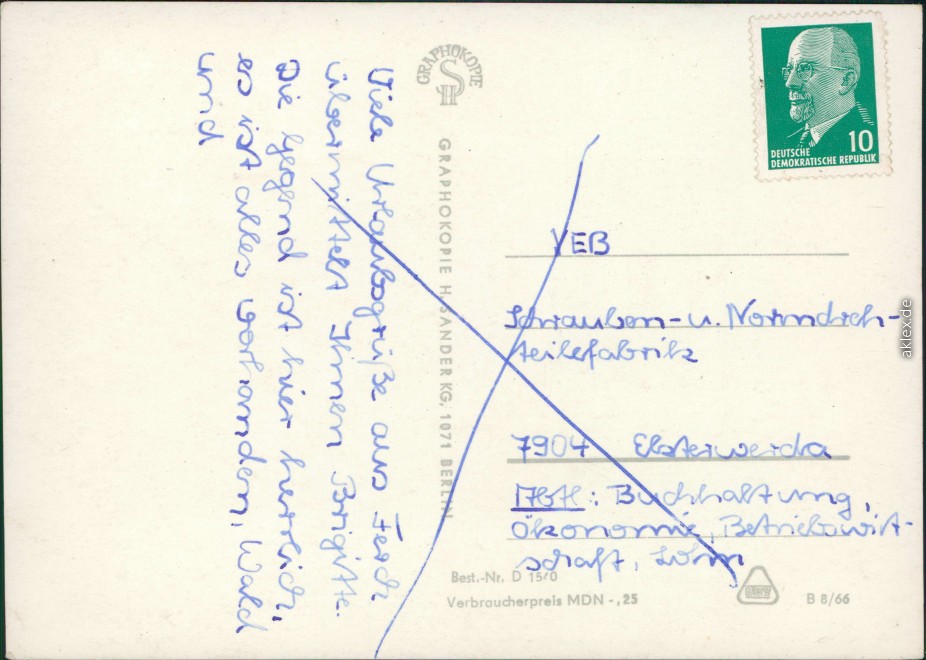 Viele Urlaubsgrüße aus Ferch
übermittelt Ihnen Brigitte.
Die Gegend ist hier herrlich,
es ist alles vorhanden, Wald
und
GRAPHOKOPIE
H S
GRAPHOKOPIE H. SANDER KG, 1071 BERLIN
10
DEUTSCHE
DEMOKRATISCHE REPUBLIK
VEB
Schrauben- u. Normdreh-
teilefabrik
7904 Elsterwerda
Abtl: Buchhaltung,
Ökonomie, Betriebswirt-
schaft, Lohn
Best.-Nr. D 15/0
Verbraucherpreis MDN -,25
B 8/66
aklex.de